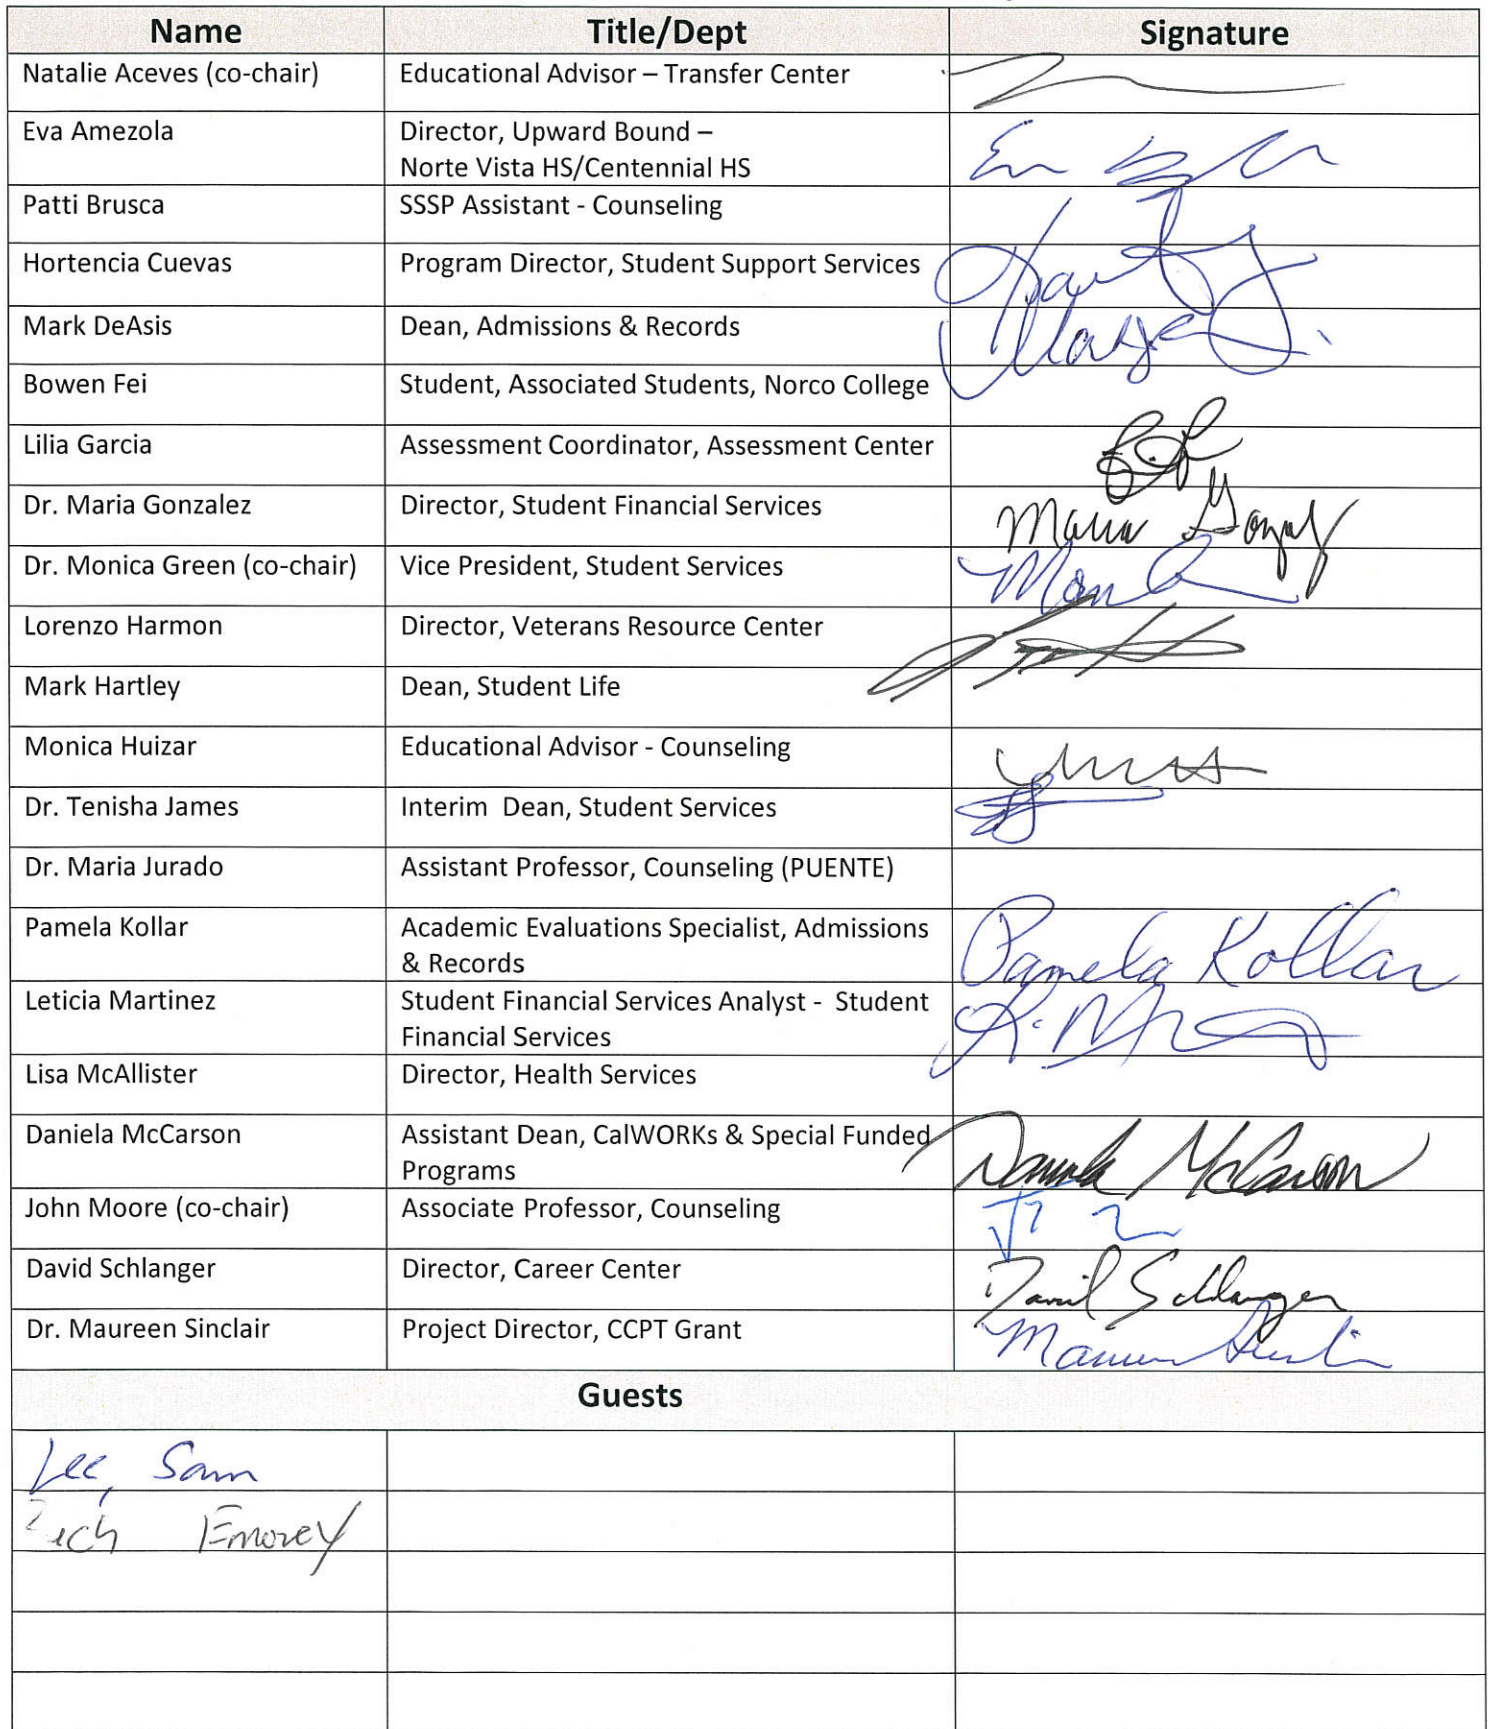 Name Title/Dept Signature
Natalie Aceves (co-chair) Educational Advisor – Transfer Center
Eva Amezola Director, Upward Bound –
Norte Vista HS/Centennial HS
Patti Brusca SSSP Assistant - Counseling
Hortencia Cuevas Program Director, Student Support Services
Mark DeAsis Dean, Admissions & Records
Bowen Fei Student, Associated Students, Norco College
Lilia Garcia Assessment Coordinator, Assessment Center
Dr. Maria Gonzalez Director, Student Financial Services Maria
Dr. Monica Green (co-chair) Vice President, Student Services
Lorenzo Harmon Director, Veterans Resource Center
Mark Hartley Dean, Student Life
Monica Huizar Educational Advisor - Counseling
Dr. Tenisha James Interim Dean, Student Services
Dr. Maria Jurado Assistant Professor, Counseling (PUENTE)
Pamela Kollar Academic Evaluations Specialist, Admissions Pamela Kollar
& Records
Leticia Martinez Student Financial Services Analyst - Student
Financial Services
Lisa McAllister Director, Health Services
Daniela McCarson Assistant Dean, CalWORKs & Special Funded Daniela McCarson
Programs
John Moore (co-chair) Associate Professor, Counseling
David Schlanger Director, Career Center David Schlanger
Dr. Maureen Sinclair Project Director, CCPT Grant
Guests
Lee, Sam
Emorey